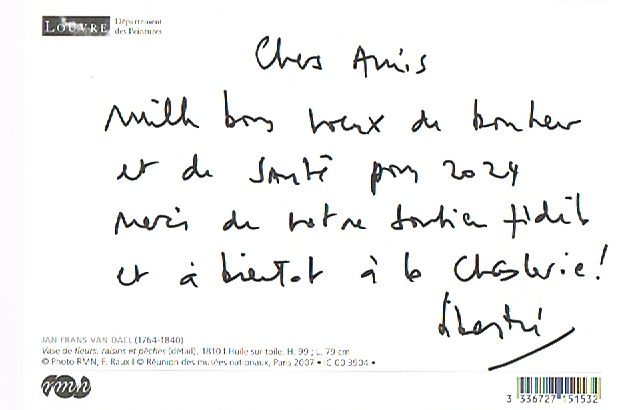 LOUVRE Département
des Peintures
Chers Amis
Mille bons voeux de bonheur
et de santé pour 2024
merci de votre soutien fidèle
et à bientôt à la Chaslerie !
JAN FRANS VAN DAEL (1764-1840)
Vase de fleurs, raisins et pêches (détail), 1810 I Huile sur toile. H. 99 ; L. 79 cm
© Photo RMN, F. Raux I © Réunion des musées nationaux, Paris 2007 • IC 00 3904 •
rmn
3 336727 151532